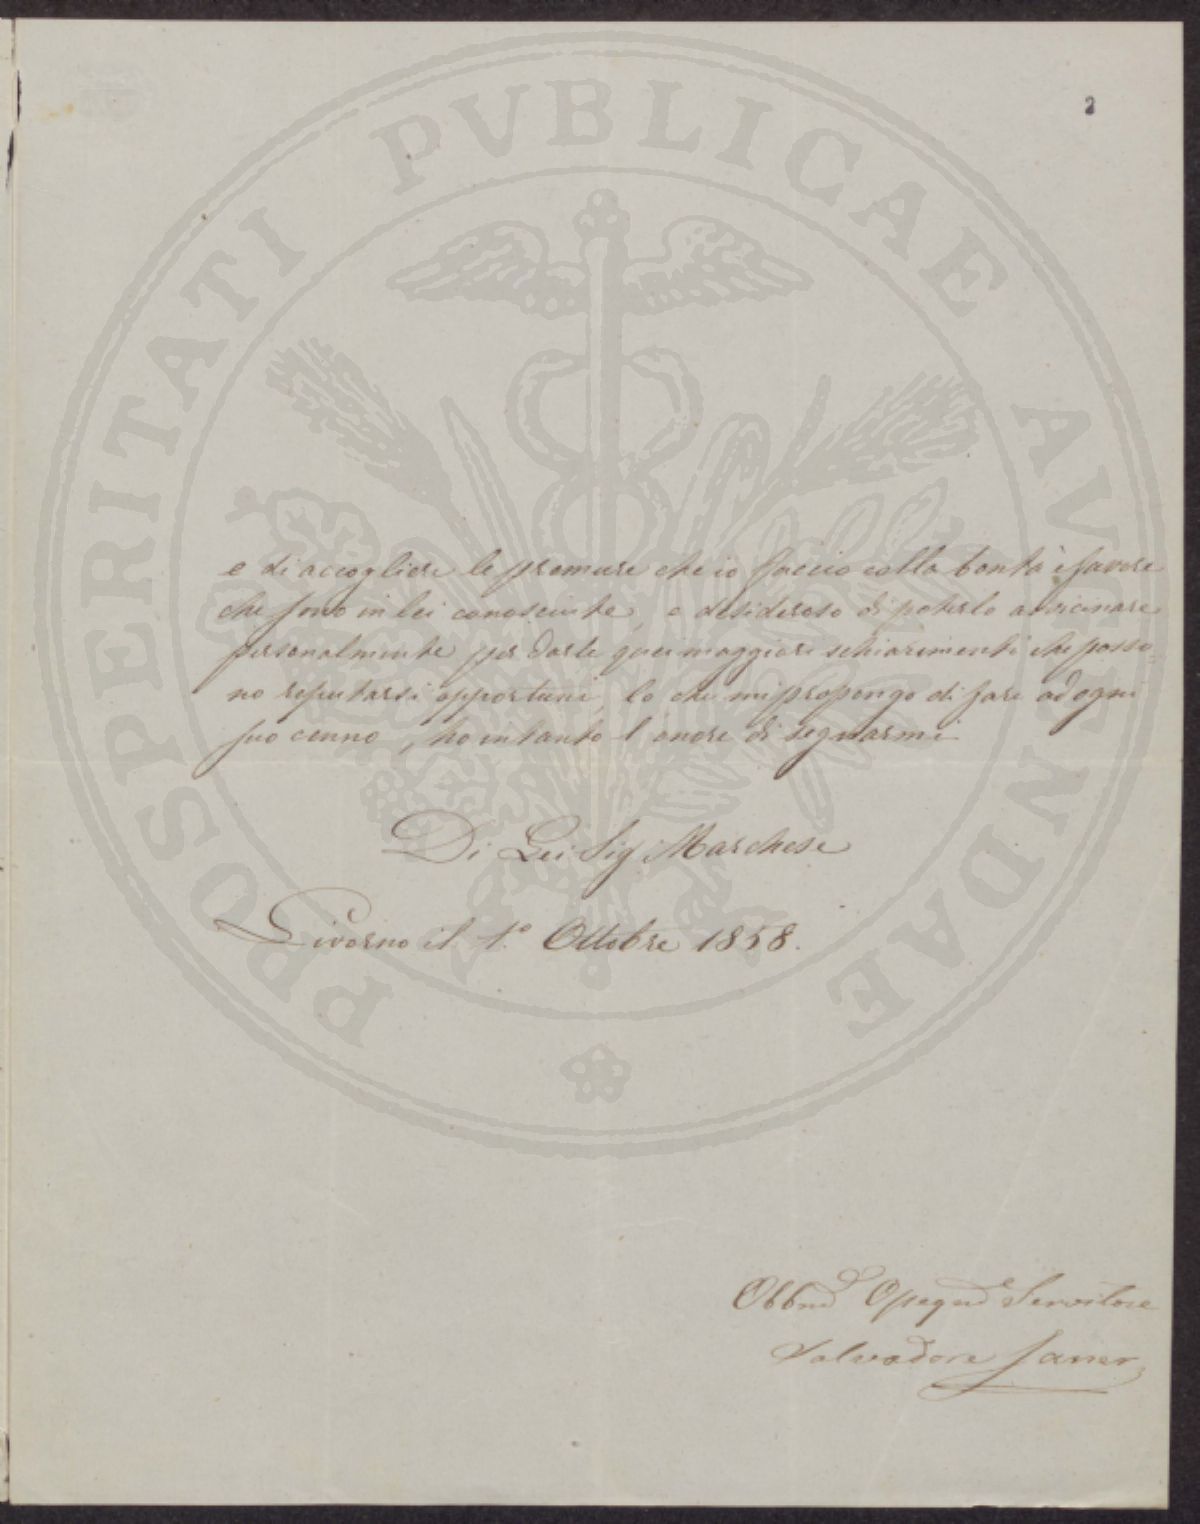 2
PROSPERITATI PVBLICAE AVGENDAE
e di accogliere le premure che io faccio colla bontà è favore
che sono in lei conosciute, e desideroso di poterlo avvicinare
personalmente per darle quei maggiori schiarimenti che posso=
no reputarsi opportuni, lo che mi propongo di fare ad ogni
suo cenno, ho intanto l'onore di segnarmi
Di Lei Sig Marchese
Livorno il 1.º Ottobre 1858.
Obbmo Ossequmo Servitore
Salvadore Janer